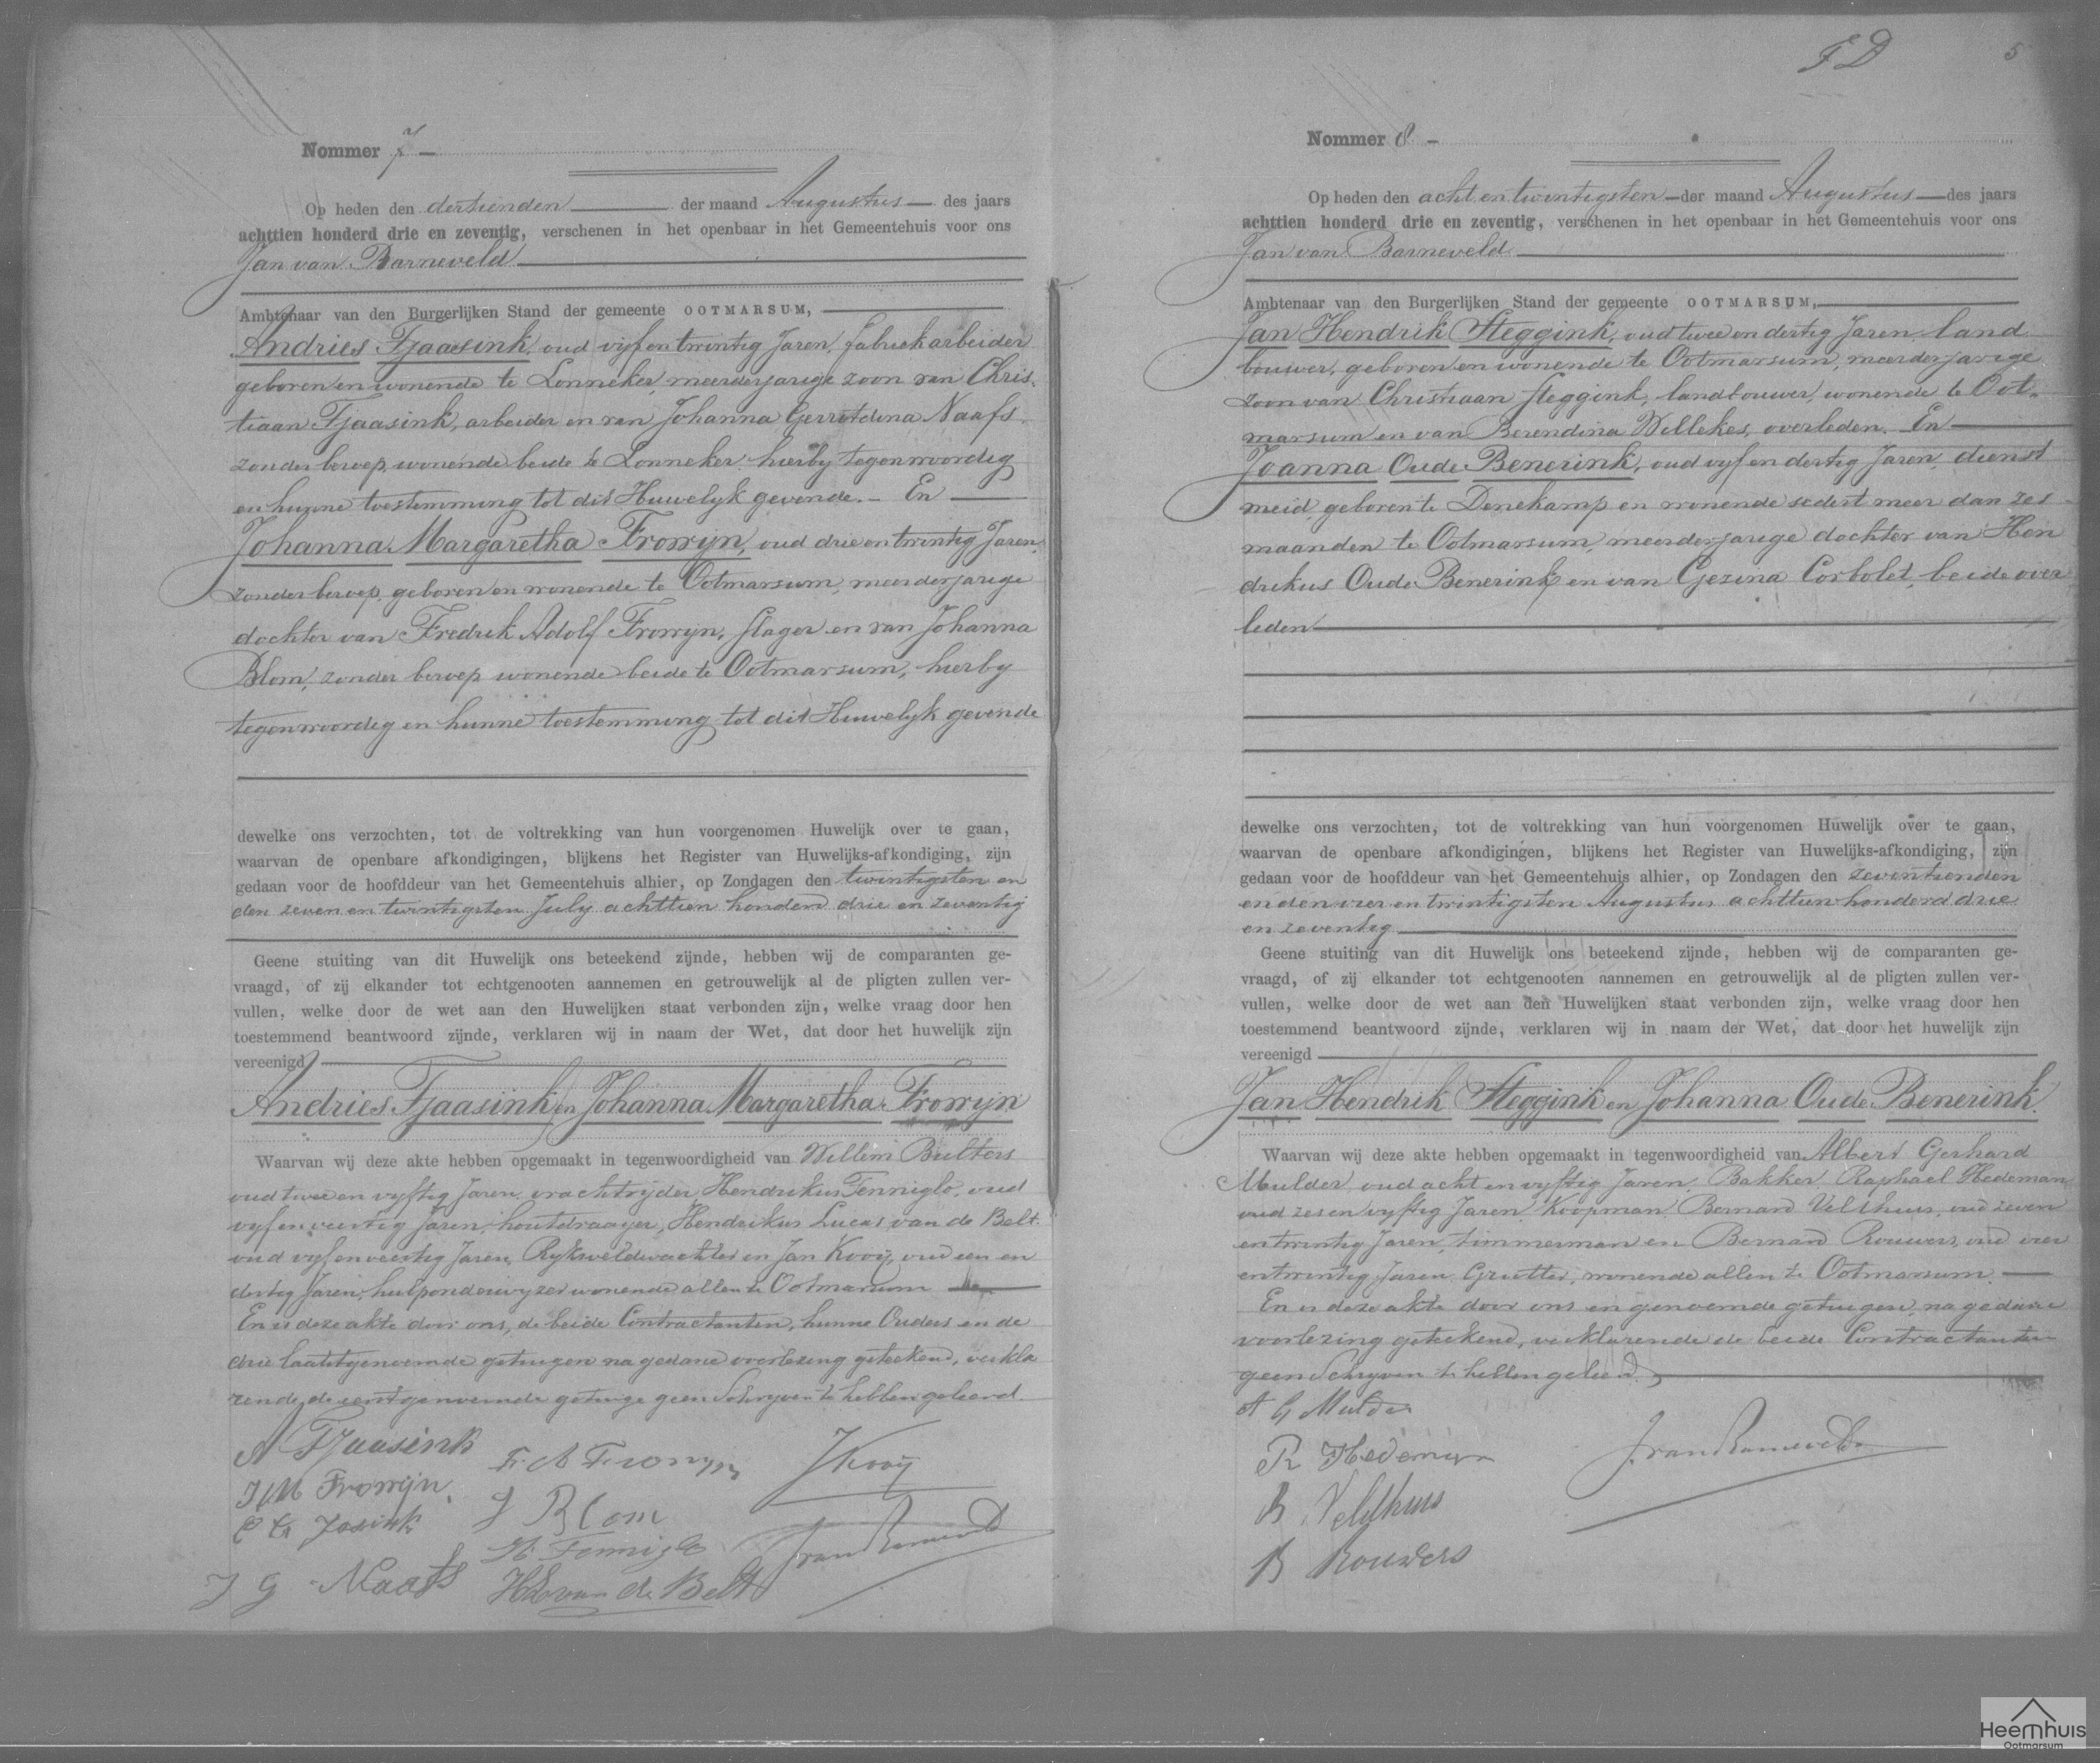 Nommer 7
Op heden den dertienden der maand Augustus des jaars
achttien honderd drie en zeventig, verschenen in het openbaar in het Gemeentehuis voor ons
Jan van Barneveld
Ambtenaar van den Burgerlijken Stand der gemeente OOTMARSUM,
Andries Tjaasink, oud vijf en twintig Jaren, fabriekarbeider
geboren en wonende te Lonneker, meerderjarige zoon van Chris-
tiaan Tjaasink, arbeider en van Johanna Gerritdina Naafs
zonder beroep, wonende beide te Lonneker hierby tegenwoordig
en hunne toestemming tot dit Huwelyk gevende. – En
Johanna Margaretha Frowyn, oud drie en twintig Jaren,
zonder beroep, geboren en wonende te Ootmarsum, meerderjarige
dochter van Fredrik Adolf Frowyn, slager en van Johanna
Blom, zonder beroep wonende beide te Ootmarsum, hierby
tegenwoordig en hunne toestemming tot dit Huwelyk gevende
dewelke ons verzochten, tot de voltrekking van hun voorgenomen Huwelijk over te gaan,
waarvan de openbare afkondigingen, blijkens het Register van Huwelijks-afkondiging, zijn
gedaan voor de hoofddeur van het Gemeentehuis alhier, op Zondagen den twintigsten en
den zeven en twintigsten July achttien honderd drie en zeventig
Geene stuiting van dit Huwelijk ons beteekend zijnde, hebben wij de comparanten ge-
vraagd, of zij elkander tot echtgenooten aannemen en getrouwelijk al de pligten zullen ver-
vullen, welke door de wet aan den Huwelijken staat verbonden zijn, welke vraag door hen
toestemmend beantwoord zijnde, verklaren wij in naam der Wet, dat door het huwelijk zijn
vereenigd
Andries Tjaasink en Johanna Margaretha Frowyn
Waarvan wij deze akte hebben opgemaakt in tegenwoordigheid van Willem Bulters
oud twee en vyftig Jaren, vrachtrijder, Hendrikus Tenniglo, oud
vyf en veertig Jaren, houtdraayer, Hendrikus Lucas van de Belt
oud vyf en veertig Jaren, Rykweldwachter en Jan Kooij, oud een en
dertig Jaren, hulponderwyzer wonende allen te Ootmarsum
En is deze akte door ons, de beide Contractanten, hunne Ouders en de
drie laatstgenoemde getuigen na gedane voorlezing geteekend, verkla
rende de eerstgenoemde getuige geen Schryven te hebben geleerd.
A Tjaasink
J M Frowijn
F. A Frowyn
J Kooij
J Blom
H. Tenniglo
J van Barneveld
J G Naafs
H L van de Belt
F D
5
Nommer 8
Op heden den acht en twintigsten der maand Augustus des jaars
achttien honderd drie en zeventig, verschenen in het openbaar in het Gemeentehuis voor ons
Jan van Barneveld
Ambtenaar van den Burgerlijken Stand der gemeente OOTMARSUM,
Jan Hendrik Steggink, oud twee en dertig Jaren, land
bouwer, geboren en wonende te Ootmarsum, meerderjarige
zoon van Christiaan Steggink, landbouwer, wonende te Oot-
marsum en van Berendina Wellekes, overleden. En
Joanna Oude Benerink, oud vyf en dertig Jaren, dienst
meid, geboren te Denekamp en wonende sedert meer dan zes
maanden te Ootmarsum, meerderjarige dochter van Hen
drikus Oude Benerink en van Gezina Corbolet, beide over
leden
dewelke ons verzochten, tot de voltrekking van hun voorgenomen Huwelijk over te gaan,
waarvan de openbare afkondigingen, blijkens het Register van Huwelijks-afkondiging, zijn
gedaan voor de hoofddeur van het Gemeentehuis alhier, op Zondagen den zeventienden
en den vier en twintigsten Augustus achttien honderd drie
en zeventig
Geene stuiting van dit Huwelijk ons beteekend zijnde, hebben wij de comparanten ge-
vraagd, of zij elkander tot echtgenooten aannemen en getrouwelijk al de pligten zullen ver-
vullen, welke door de wet aan den Huwelijken staat verbonden zijn, welke vraag door hen
toestemmend beantwoord zijnde, verklaren wij in naam der Wet, dat door het huwelijk zijn
vereenigd
Jan Hendrik Steggink en Johanna Oude Benerink.
Waarvan wij deze akte hebben opgemaakt in tegenwoordigheid van Albert Gerhard
Mulder, oud acht en vyftig Jaren, Bakker, Raphael Hedeman
oud zes en vyftig Jaren Koopman Bernard Velthuis, oud zeven
en twintig Jaren, timmerman en Bernard Rouwers, oud vier
en twintig Jaren Grutter, wonende allen te Ootmarsum.
En is deze akte door ons en genoemde getuigen, na gedane
voorlezing geteekend, verklarende de beide Contractanten
geen Schryven te hebben geleerd.
A G Mulder
R Hedeman
J. van Barneveld
B Veldhuis
B Rouwers
Heemhuis
Ootmarsum